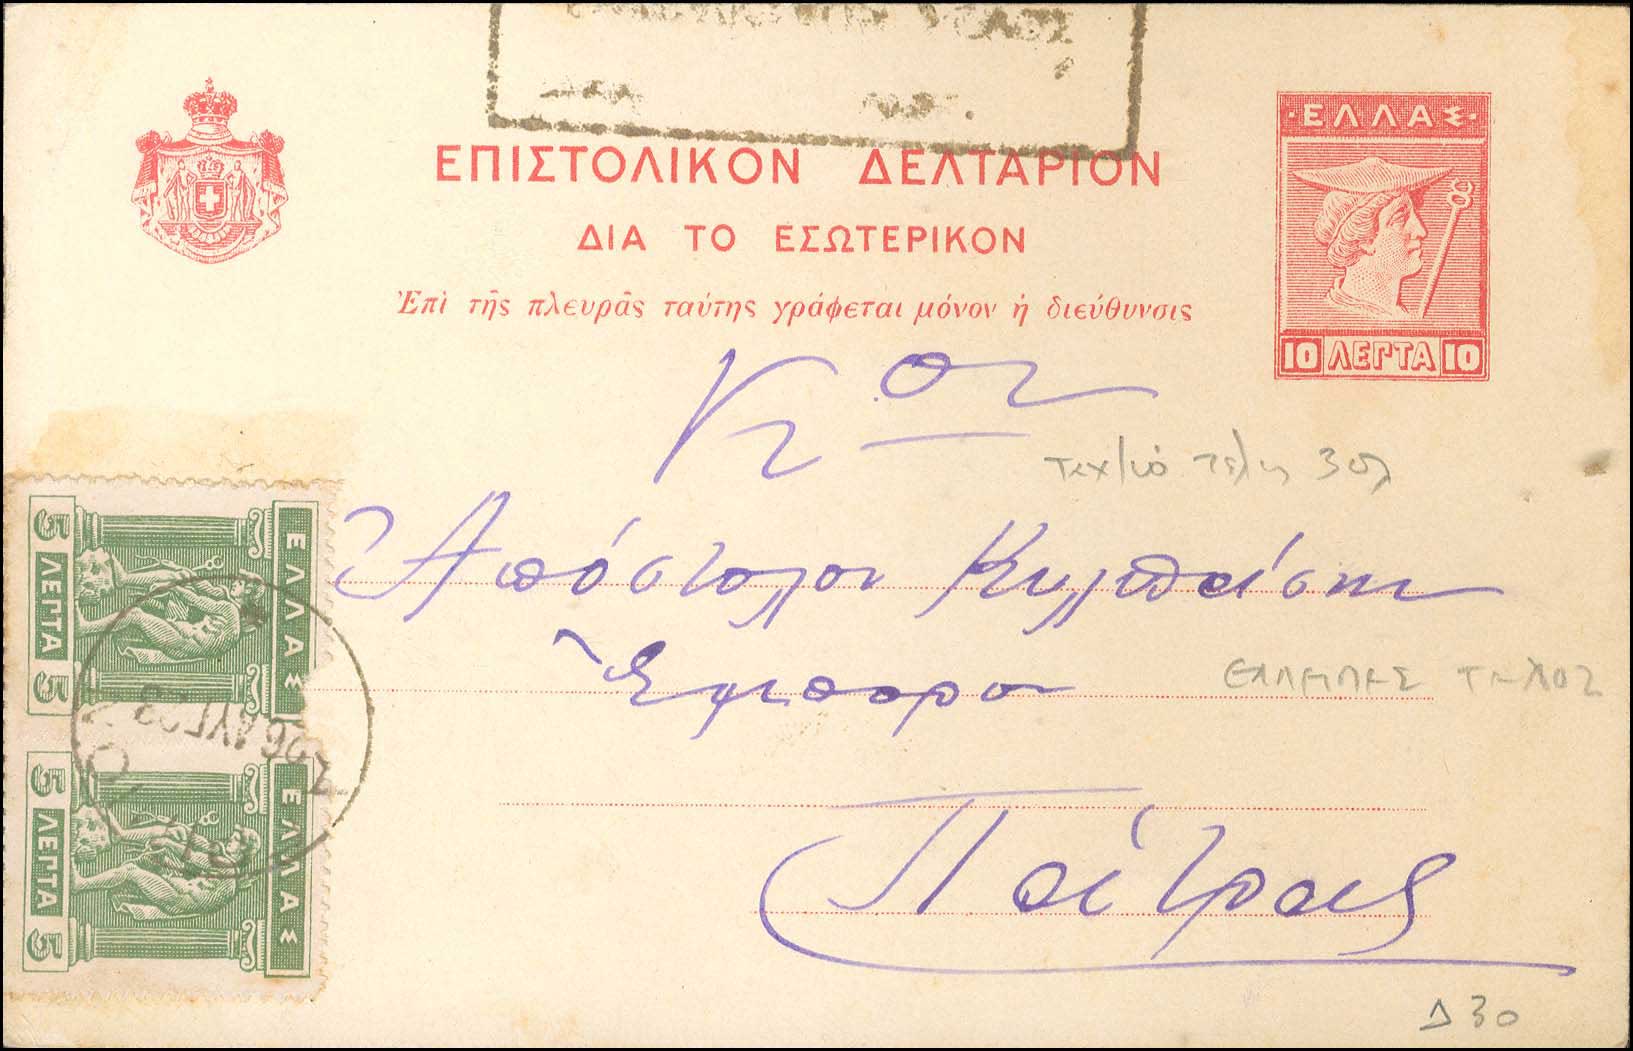 ΕΛΛΑΣ
ΕΠΙΣΤΟΛΙΚΟΝ ΔΕΛΤΑΡΙΟΝ
ΔΙΑ ΤΟ ΕΣΩΤΕΡΙΚΟΝ
Ἐπὶ τῆς πλευρᾶς ταύτης γράφεται μόνον ἡ διεύθυνσις
10 ΛΕΠΤΑ 10
Κον
τέλη 30λ
Ἀπόστολον
Ἔμπορον
ΕΛΛΕΙΠΕΣ ΤΕΛΟΣ
Πάτρας
Δ 30
ΕΛΛΑΣ
5 ΛΕΠΤΑ 5
26 ΑΥΓ 23
ΕΛΛΑΣ
5 ΛΕΠΤΑ 5